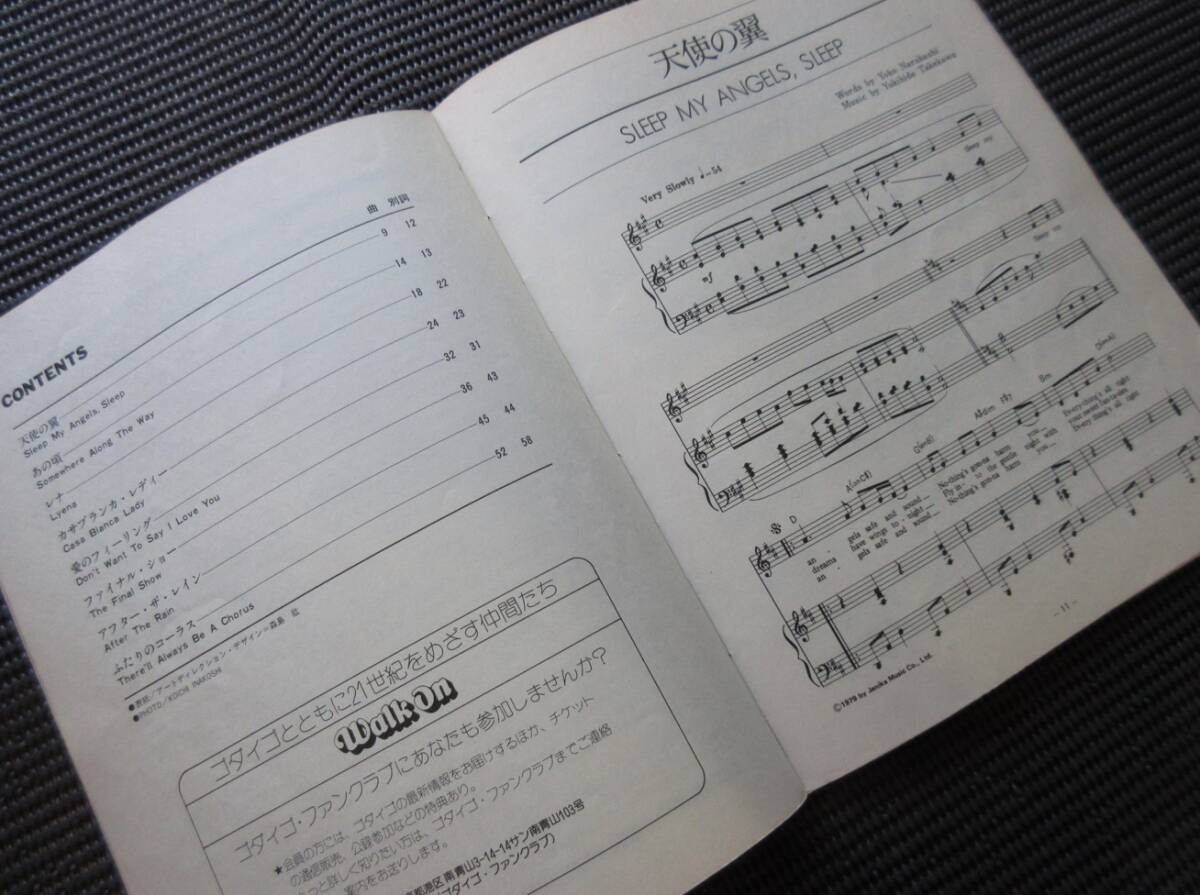 CONTENTS
曲 別詞
天使の翼 9 12
Sleep My Angels, Sleep
あの頃 14 13
Somewhere Along The Way
レナ 18 22
Lyena
カサブランカ・レディー 24 23
Casa Blanca Lady
愛のフィーリング 32 31
Don't Want To Say I Love You
ファイナル・ショー 36 43
The Final Show
アフター・ザ・レイン 45 44
After The Rain
ふたりのコーラス 52 58
There'll Always Be A Chorus
●表紙/アートディレクション・デザイン=森島 紘
●PHOTO/KOICHI INAKOSHI
ゴダイゴとともに21世紀をめざす仲間たち
Walk On
ゴダイゴ・ファンクラブにあなたも参加しませんか?
★会員の方には、ゴダイゴの最新情報をお届けするほか、チケット
の通信販売、公録参加などの特典あり。
っと詳しく知りたい方は、ゴダイゴ・ファンクラブまでご連絡
案内をお送りします。
京都港区南青山3-14-14サン南青山103号
ゴダイゴ・ファンクラブ)
天使の翼
SLEEP MY ANGELS, SLEEP
Words by Yoko Narahashi
Music by Yukihide Takekawa
Very Slowly ♩=54
mf
Sleep my
Sleep my
D A(onC#) G(onB) A6dim F#7 Bm D(onA)
an - gels safe and sound Nothing's gon-na harm you Everything's all right
dreams have wings to-night Fly in - to the gentle night with
an - gels safe and sound Nothing's gon-na harm you Everything's all right
— 11 —
©1979 by Jenika Music Co., Ltd.